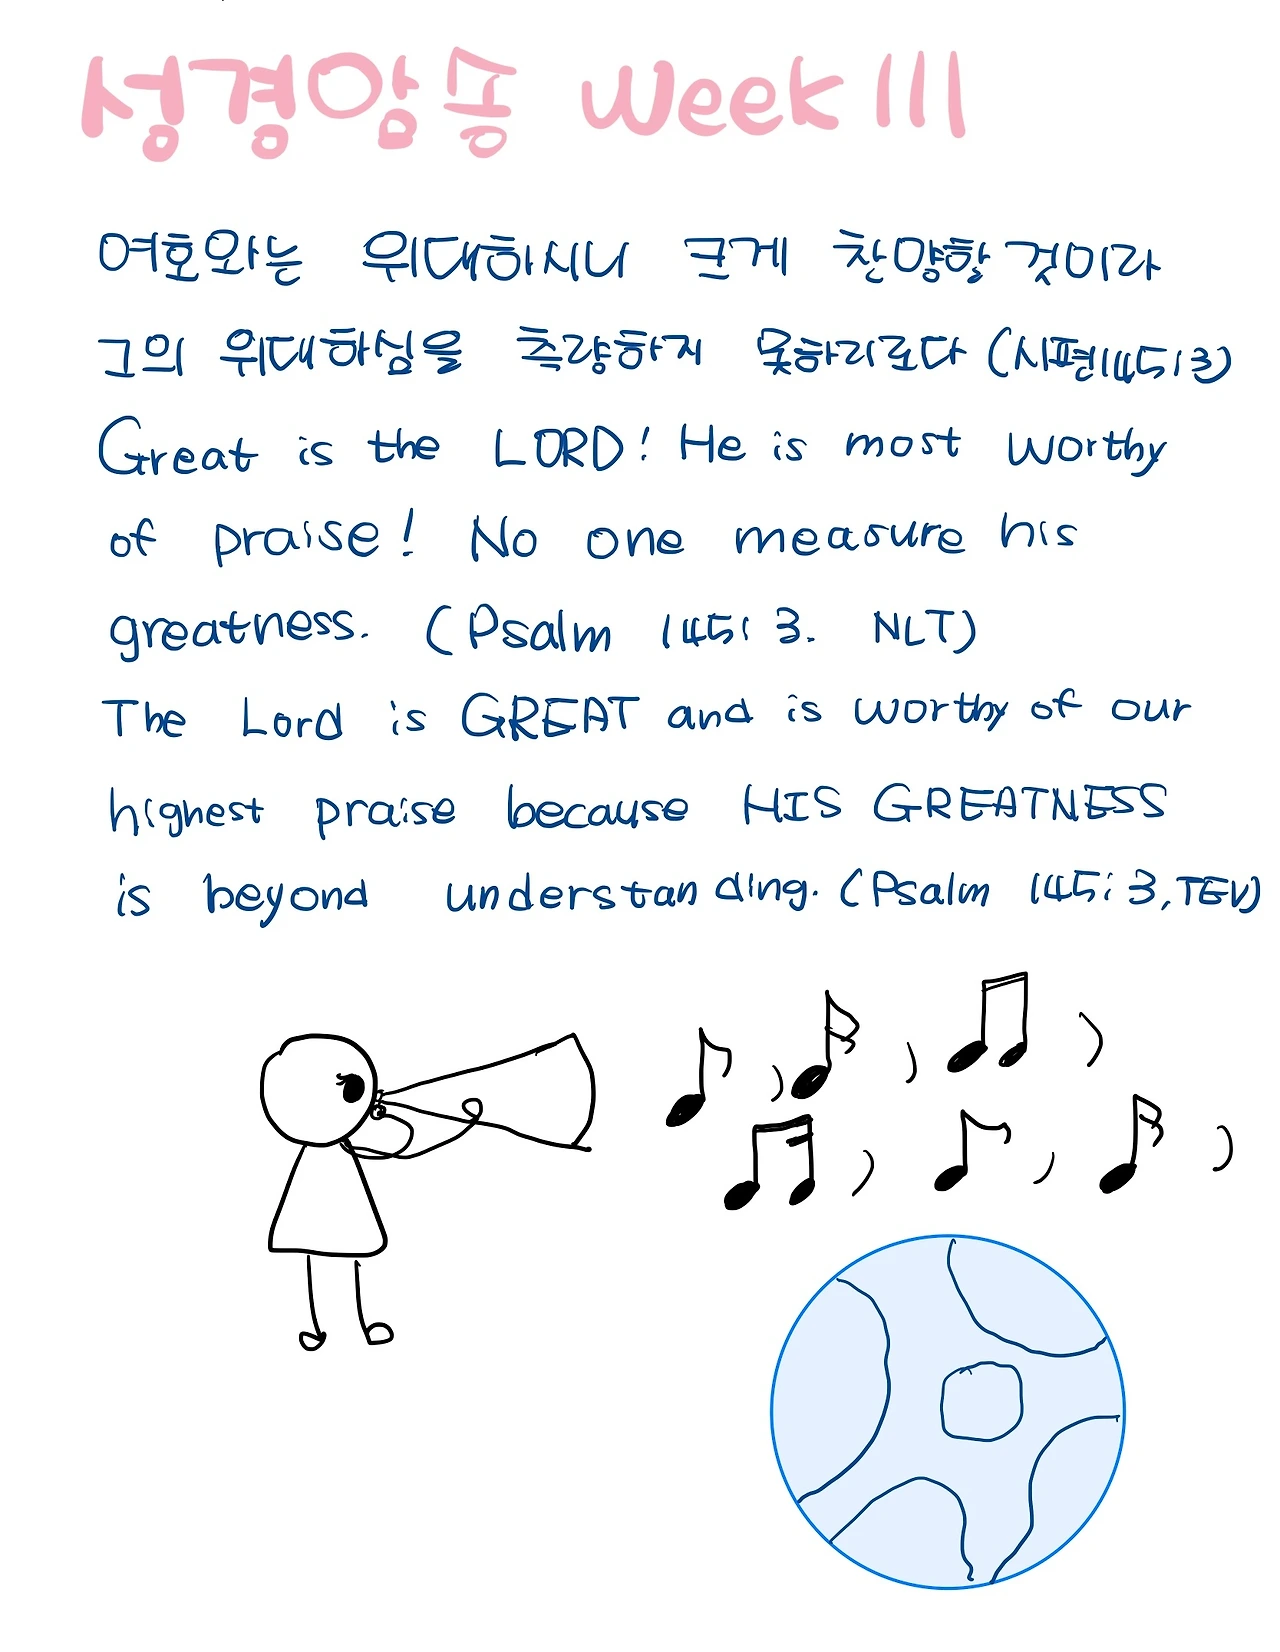 성경암송 Week 111
여호와는 위대하시니 크게 찬양할 것이라
그의 위대하심을 측량하지 못하리로다 (시편145:3)
Great is the LORD! He is most worthy
of praise! No one measure his
greatness. (Psalm 145:3. NLT)
The Lord is GREAT and is worthy of our
highest praise because HIS GREATNESS
is beyond understanding. (Psalm 145:3, TEV)